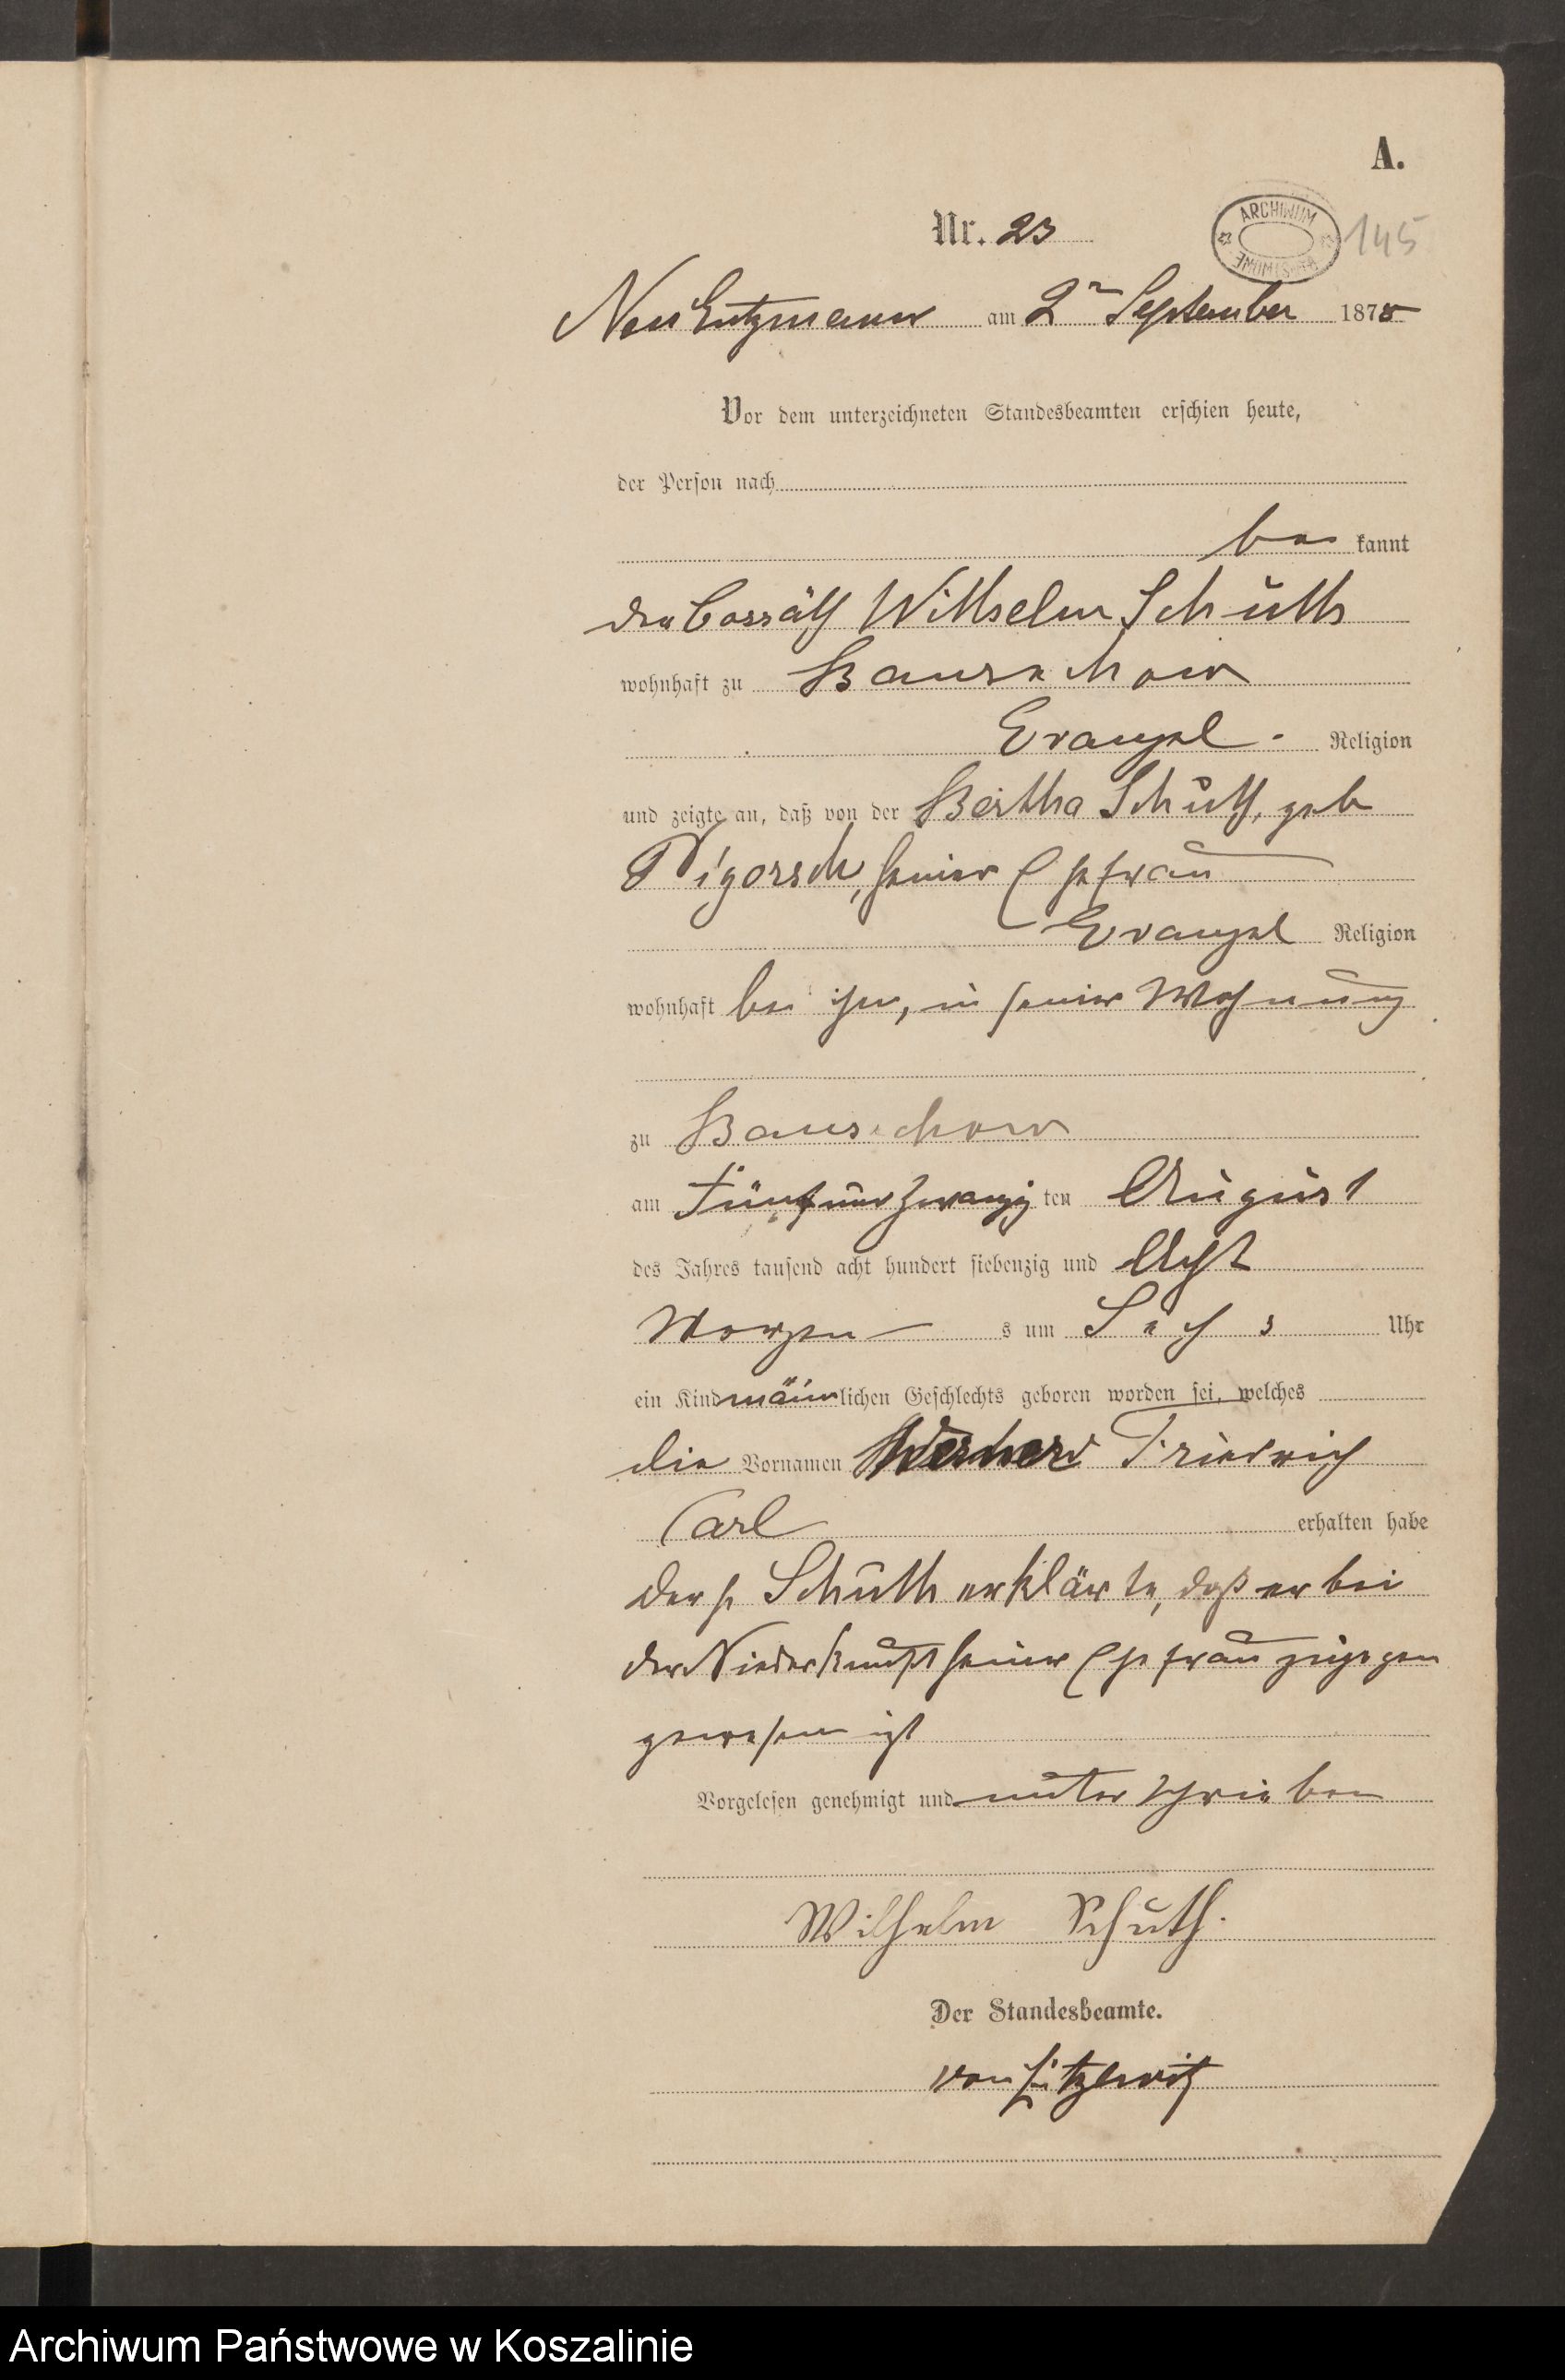 A.
Nr. 23
ARCHIWUM
145
am 2n September 1878
Vor dem unterzeichneten Standesbeamten erschien heute,
der Person nach
be kannt
der Cossäth Wilhelm Schüth
wohnhaft zu
Evangel. Religion
und zeigte an, daß von der Bertha Schüth, geb
Pigorsch, seiner Ehefrau
Evangel Religion
wohnhaft bei ihm, in seiner Wohnung
zu
am Fünfundzwanzigten August
des Jahres tausend acht hundert siebenzig und Acht
Morgen s um Sechs Uhr
ein Kind männlichen Geschlechts geboren worden sei, welches
die Vornamen Friedrich
Carl erhalten habe
der p Schüth erklärte, daß er bei
der Niederkunft seiner Ehefrau zugegen
gewesen ist
Vorgelesen genehmigt und unterschrieben
Wilhelm Schuth.
Der Standesbeamte.
von Zitzewitz
Archiwum Państwowe w Koszalinie